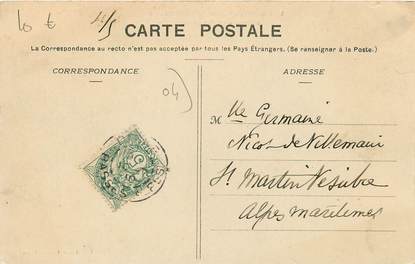 10 €
CARTE POSTALE
La Correspondance au recto n'est pas acceptée par tous les Pays Étrangers. (Se renseigner à la Poste.)
CORRESPONDANCE
ADRESSE
04)
Mlle Germaine
Nicot de Villemain
St Martin Vésubie
Alpes Maritimes